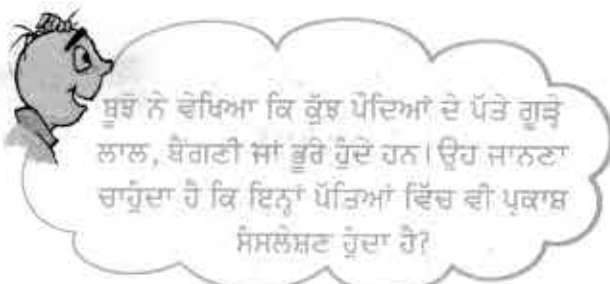 ਬੂਝੋ ਨੇ ਵੇਖਿਆ ਕਿ ਕੁੱਝ ਪੌਦਿਆਂ ਦੇ ਪੱਤੇ ਗੂੜ੍ਹੇ
ਲਾਲ, ਬੈਂਗਣੀ ਜਾਂ ਭੂਰੇ ਹੁੰਦੇ ਹਨ। ਉਹ ਜਾਨਣਾ
ਚਾਹੁੰਦਾ ਹੈ ਕਿ ਇਨ੍ਹਾਂ ਪੱਤਿਆਂ ਵਿੱਚ ਵੀ ਪ੍ਰਕਾਸ਼
ਸੰਸਲੇਸ਼ਣ ਹੁੰਦਾ ਹੈ?